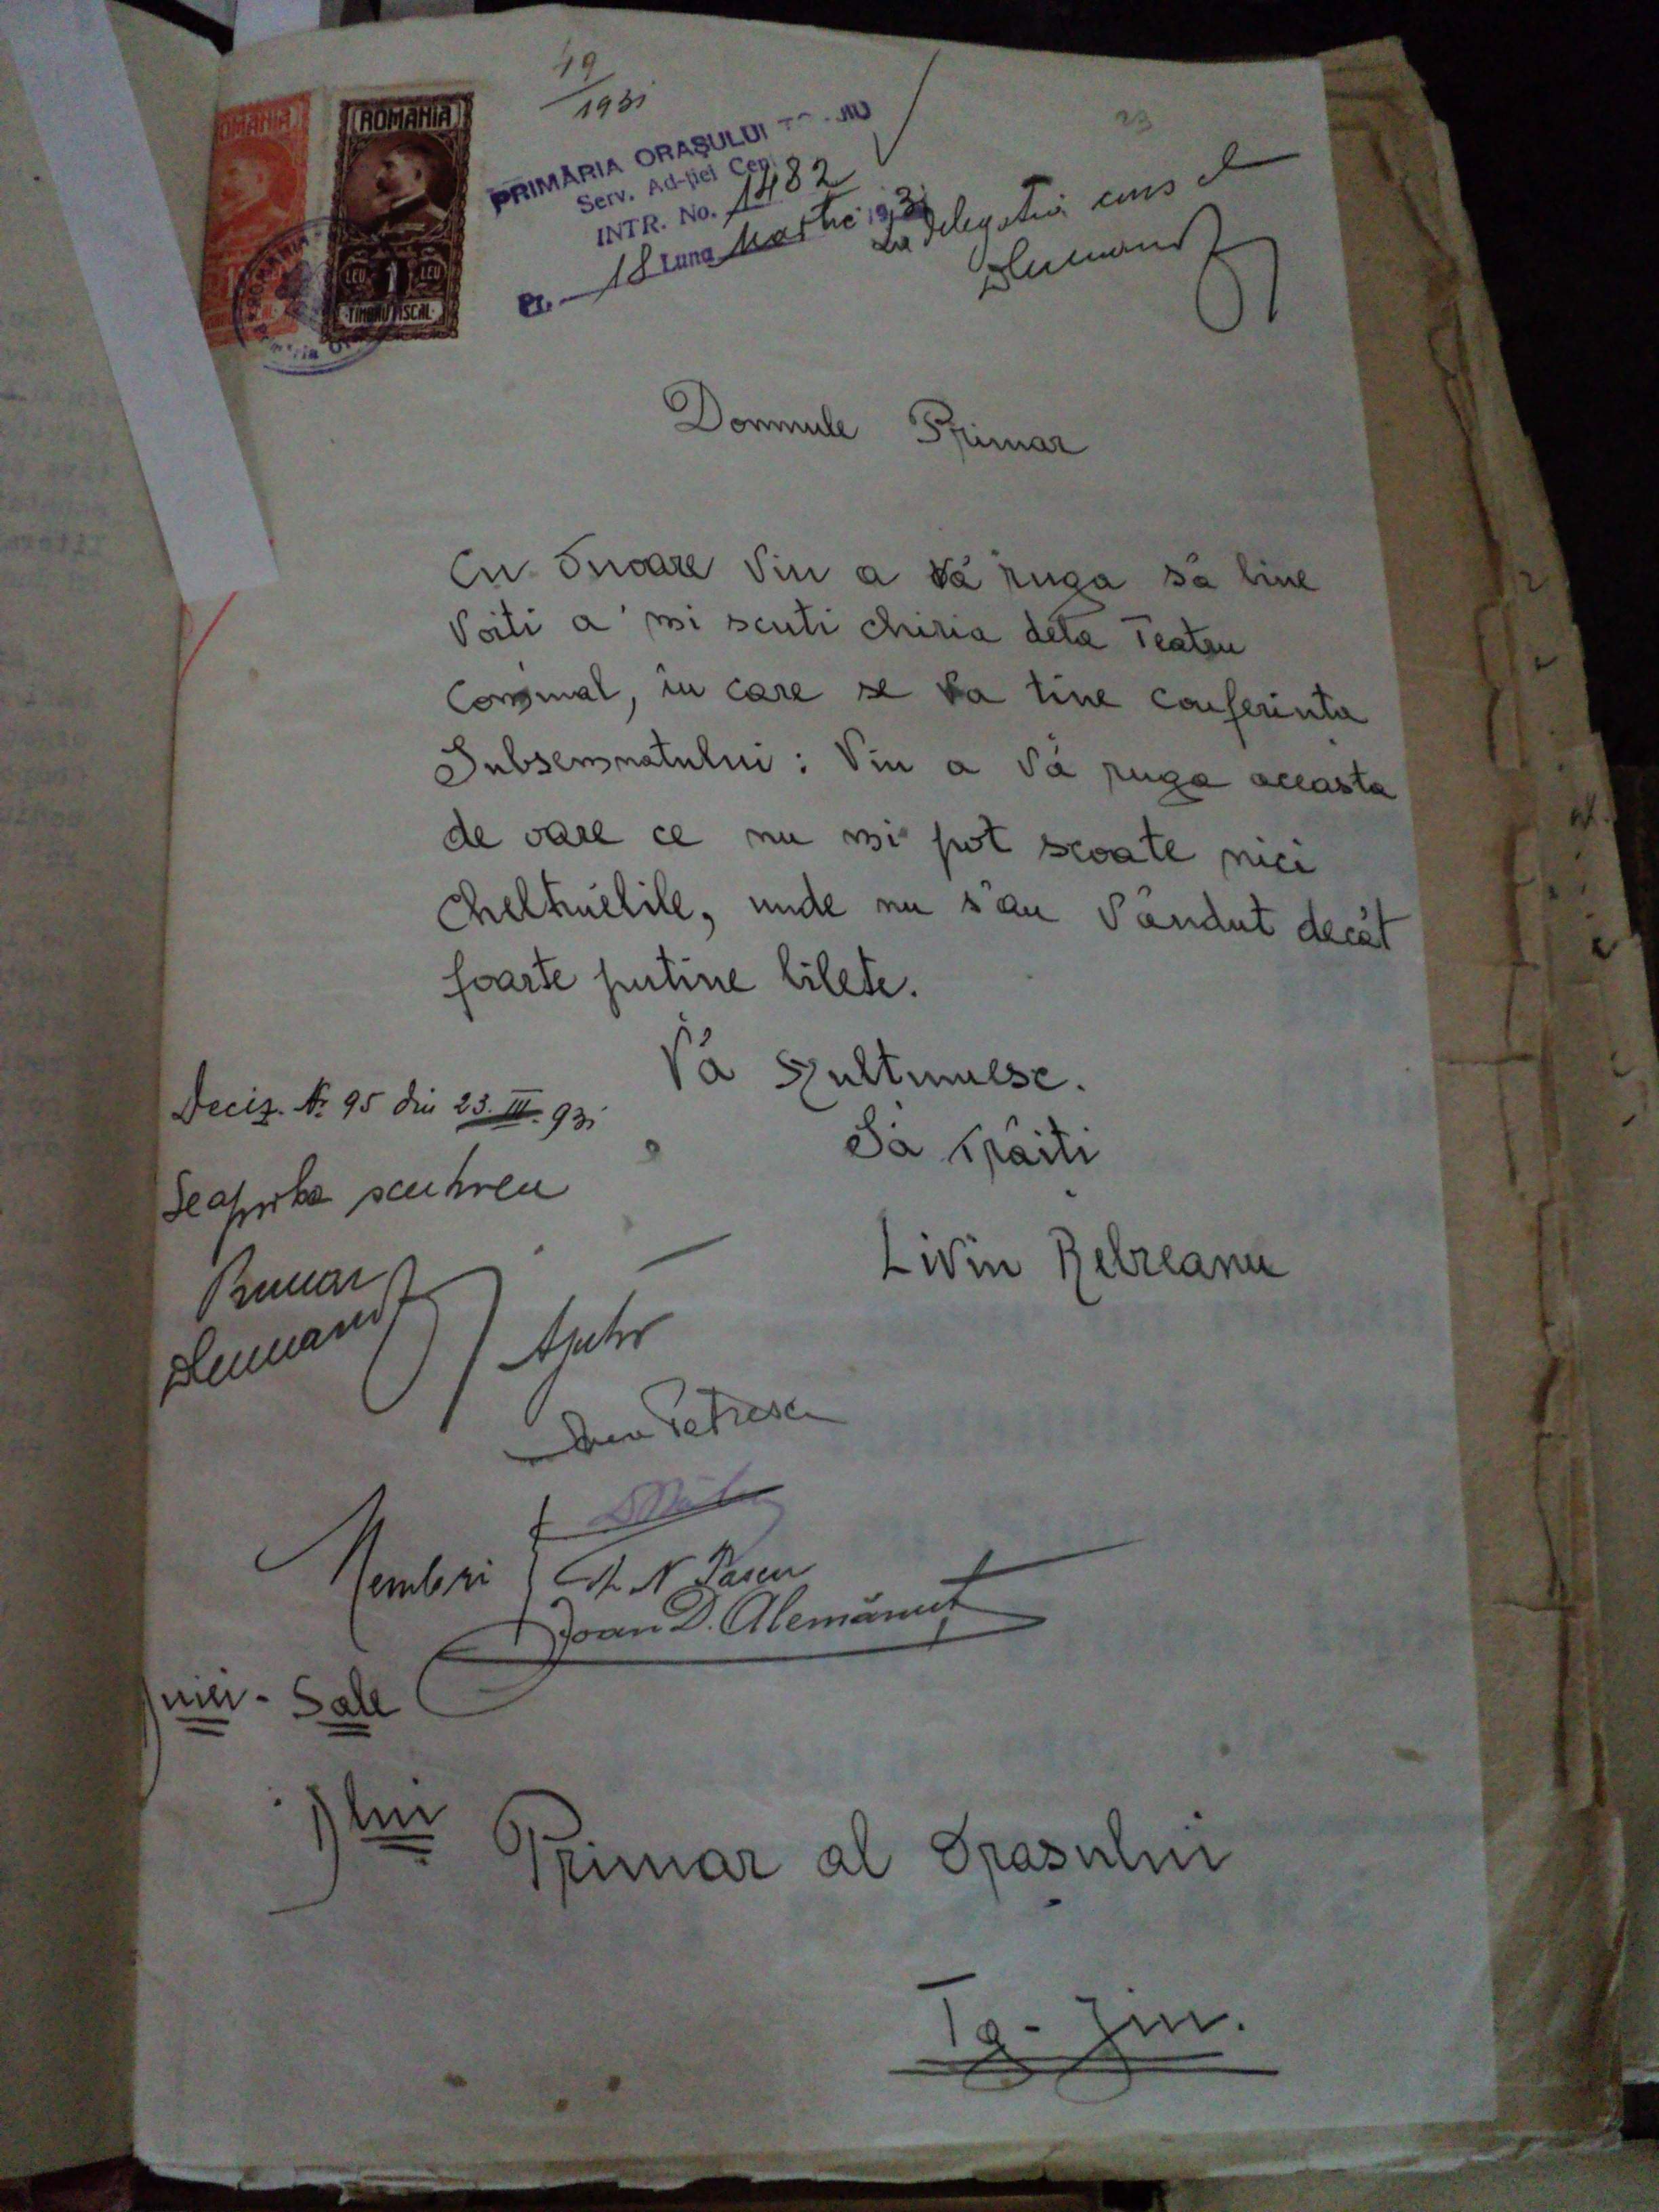 49
1931
23
ROMANIA
OMANIA
LEU 1 LEU
TIMBRU FISCAL
PRIMĂRIA ORAŞULUI JIU
Serv. Ad-ţiei
INTR. No. 1482
18 Luna Martie 1931
La delegatia
Domnule Primar
Cu Onoare Viu a Vă ruga să bine
Voiti a 'mi scuti chiria dela Teatru
Comunal, în care se Va tine conferinta
Subsemnatului: Viu a Vă ruga aceasta
de oare ce nu mi pot scoate nici
Cheltuelile, unde nu s'au Vândut decât
foarte putine bilete.
Vă Multumesc.
Să Trăiti
Liviu Rebreanu
Deciz. No 95 din 23.III.931
Se aproba scutirea
Primar
Ajutor
Petrescu
Membri
N Pascu
Ioan D. Alemănuţ
Dniei-Sale
Dlui Primar al Orasului
Tg-Jiu.